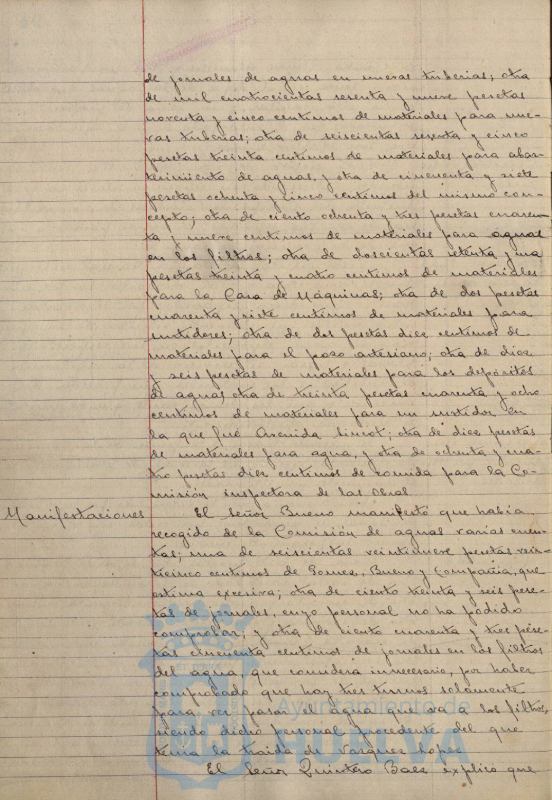 de jornales de aguas en nuevas tuberias; otra
de mil cuatrocientas sesenta y nueve pesetas
noventa y cinco centimos de materiales para nue-
vas tuberias; otra de seiscientas sesenta y cinco
pesetas treinta centimos de materiales para abas-
tecimiento de aguas, y otra de cincuenta y siete
pesetas ochenta y cinco centimos del mismo con-
cepto; otra de ciento ochenta y tres pesetas cuaren-
ta y nueve centimos de materiales para aguas
en los filtros; otra de doscientas y una
pesetas treinta y cuatro centimos de materiales
para la Casa de Máquinas; otra de dos pesetas
cuarenta y siete centimos de materiales para
surtidores; otra de dos pesetas diez centimos de
materiales para el pozo artesiano; otra de diez
y seis pesetas de materiales para los depósitos
de aguas, otra de treinta pesetas cuarenta y ocho
centimos de materiales para un surtidor en
la que fué Avenida ; otra de diez pesetas
de materiales para agua, y otra de ochenta y cua-
tro pesetas diez centimos de comida para la Co-
misión inspectora de las obras.
Manifestaciones El Señor Bueno manifestó que habia
recogido de la Comisión de aguas varias cuen-
tas; una de seiscientas veintinueve pesetas vein-
ticinco centimos de Gomez, Bueno y Compañia, que
estima excesiva; otra de ciento treinta y seis pese-
tas de jornales, cuyo personal no ha podido
comprobar; y otra de ciento cuarenta y tres pese-
tas cincuenta centimos de jornales en los filtros
del agua, que considera innecesario, por haber
comprobado que hay tres turnos solamente
para ver pasar el agua que va a los filtros,
siendo dicho personal procedente del que
tenia la traida de Vazquez Lopez.
El Señor Quintero Baez explicó que
Ayuntamiento de
HUELVA